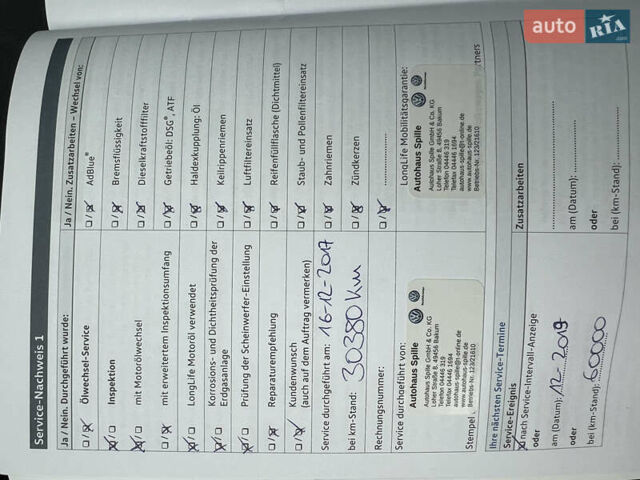 Service-Nachweis 1
Ja / Nein. Durchgeführt wurde:
Ölwechsel-Service
Inspektion
mit Motorölwechsel
mit erweitertem Inspektionsumfang
LongLife Motoröl verwendet
Korrosions- und Dichtheitsprüfung der
Erdgasanlage
Prüfung der Scheinwerfer-Einstellung
Reparaturempfehlung
Kundenwunsch
(auch auf dem Auftrag vermerken)
Service durchgeführt am: 16-12-2017
bei km-Stand: 30380 Km
Rechnungsnummer:
Service durchgeführt von:
Autohaus Spille
Autohaus Spille GmbH & Co. KG
Loher Straße 8, 49456 Bakum
Telefon 04446 319
Telefax 04446 1694
autohaus-spille@t-online.de
www.autohaus-spille.de
Betriebs-Nr. 123/21610
Stempel
Ja / Nein. Zusatzarbeiten – Wechsel von:
AdBlue®
Bremsflüssigkeit
Dieselkraftstofffilter
Getriebeöl: DSG®, ATF
Haldexkupplung: Öl
Keilrippenriemen
Luftfiltereinsatz
Reifenfüllflasche (Dichtmittel)
Staub- und Pollenfiltereinsatz
Zahnriemen
Zündkerzen
LongLife Mobilitätsgarantie:
Autohaus Spille
Autohaus Spille GmbH & Co. KG
Loher Straße 8, 49456 Bakum
Telefon 04446 319
Telefax 04446 1694
autohaus-spille@t-online.de
www.autohaus-spille.de
Betriebs-Nr. 123/21610
Ihre nächsten Service-Termine
Service-Ereignis
nach Service-Intervall-Anzeige
oder
am (Datum): 12-2019
oder
bei (km-Stand): 60000
Zusatzarbeiten
am (Datum):
oder
bei (km-Stand):
auto RIA .com